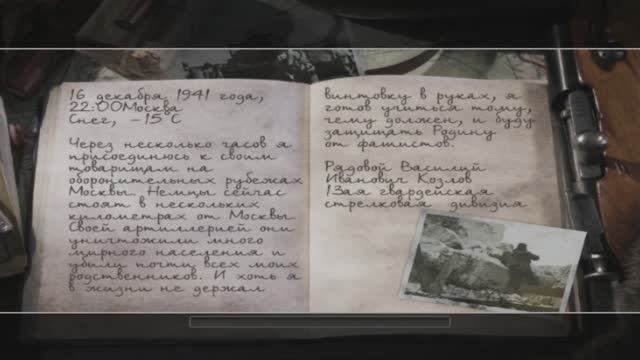 16 декабря 1941 года,
22:00Москва
Снег, -15 С
Через несколько часов я
присоединюсь к своим
товарищам на
оборонительных рубежах
Москвы. Немцы сейчас
стоят в нескольких
километрах от Москвы.
Своей артиллерией они
уничтожили много
мирного населения и
убили почти всех моих
родственников. И хоть я
в жизни не держал
винтовку в руках, я
готов учиться тому,
чему должен, и буду
защищать Родину
от фашистов.
Рядовой Василий
Иванович Козлов
13ая гвардейская
стрелковая дивизия